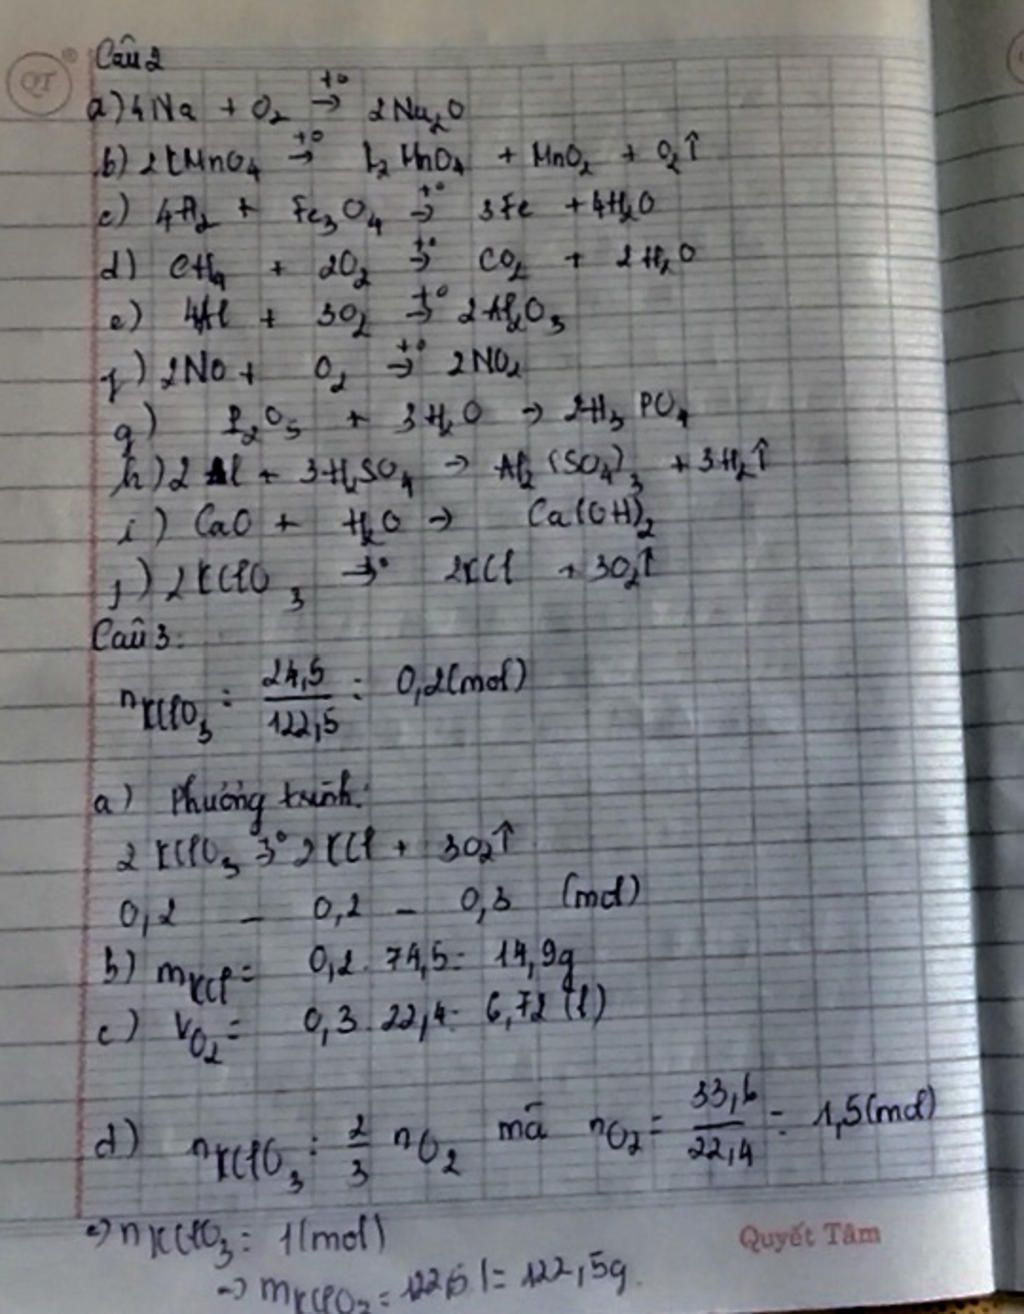 QT
Câu 2
a) 4Na + O₂ t°→ 2Na₂O
b) 2KMnO₄ t°→ K₂MnO₄ + MnO₂ + O₂↑
c) 4H₂ + Fe₃O₄ t°→ 3Fe + 4H₂O
d) CH₄ + 2O₂ t°→ CO₂ + 2H₂O
e) 4Al + 3O₂ t°→ 2Al₂O₃
f) 2NO + O₂ t°→ 2NO₂
g) P₂O₅ + 3H₂O → 2H₃PO₄
h) 2Al + 3H₂SO₄ → Al₂(SO₄)₃ + 3H₂↑
i) CaO + H₂O → Ca(OH)₂
j) 2KClO₃ t°→ 2KCl + 3O₂↑
Câu 3:
nKClO₃ = 24,5/122,5 = 0,2(mol)
a) Phương trình:
2KClO₃ t°→ 2KCl + 3O₂↑
0,2 – 0,2 – 0,3 (mol)
b) mKCl = 0,2.74,5 = 14,9g
c) VO₂ = 0,3.22,4 = 6,72 (l)
d) nKClO₃ = 2/3 nO₂ mà nO₂ = 33,6/22,4 = 1,5(mol)
=> nKClO₃ = 1(mol)
-> mKClO₃ = 122,5.1 = 122,5g.
Quyết Tâm